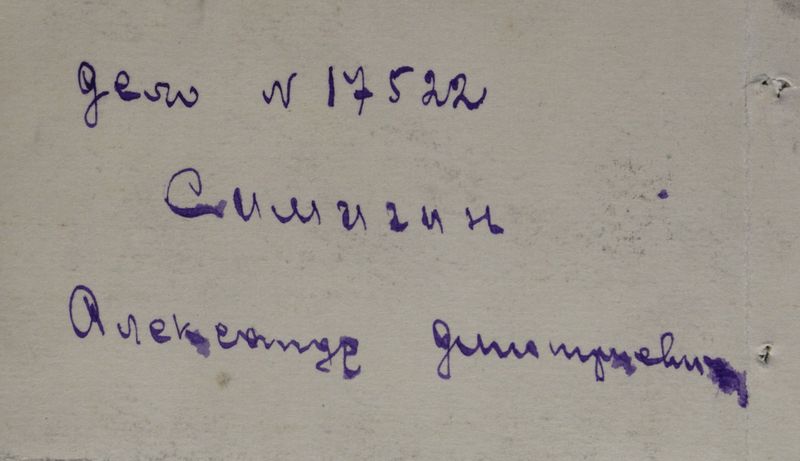 дело N 17522
Симигин
Александр дмитриевич